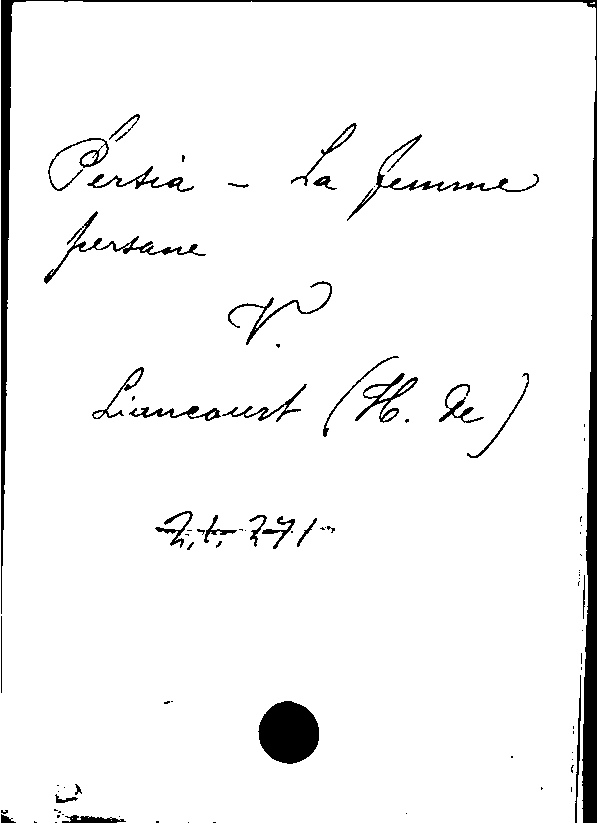 Persia - La femme
persane
V.
Liancourt (H. de)
2, 1, 271